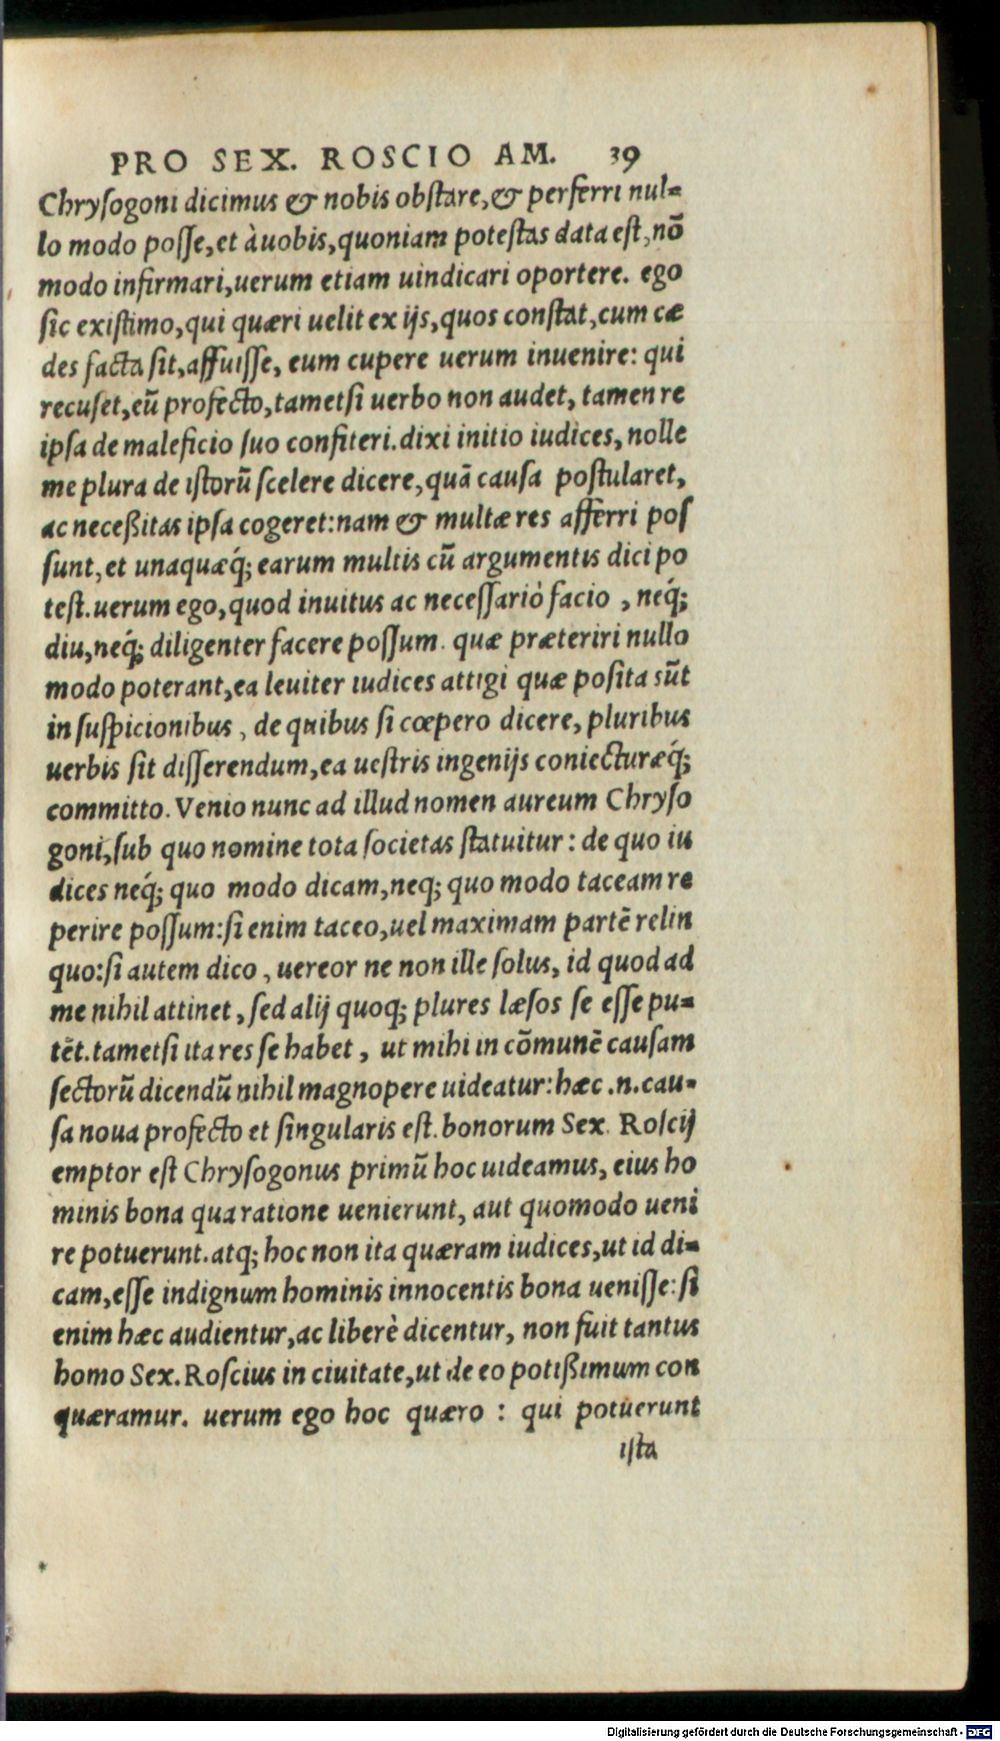 PRO SEX. ROSCIO AM. 39
Chryſogoni dicimus & nobis obſtare,& perferri nul=
lo modo poſſe,et à uobis,quoniam poteſtas data eſt,nō
modo infirmari,uerum etiam uindicari oportere. ego
ſic exiſtimo,qui quæri uelit ex ijs,quos conſtat,cum cæ
des facta ſit,affuiſſe, eum cupere uerum inuenire: qui
recuſet,eū profecto,tametſi uerbo non audet, tamen re
ipſa de maleficio ſuo confiteri.dixi initio iudices, nolle
me plura de iſtorū ſcelere dicere,quā cauſa poſtularet,
ac neceßitas ipſa cogeret:nam & multæ res afferri poſ
ſunt,et unaquæq́; earum multis cū argumentis dici po
teſt.uerum ego,quod inuitus ac neceſſariò facio , neq́;
diu,neq́; diligenter facere poſſum. quæ præteriri nullo
modo poterant,ea leuiter iudices attigi quæ poſita sūt
in ſuſpicionibus , de quibus ſi cœpero dicere, pluribus
uerbis ſit diſſerendum,ea ueſtris ingenijs coniecturæq́;
committo. Venio nunc ad illud nomen aureum Chryſo
goni,ſub quo nomine tota ſocietas ſtatuitur: de quo iu
dices neq́; quo modo dicam,neq; quo modo taceam re
perire poſſum:ſi enim taceo,uel maximam partē relin
quo:ſi autem dico , uereor ne non ille ſolus, id quod ad
me nihil attinet , ſed alij quoq; plures læſos ſe eſſe pu=
tēt.tametſi ita res ſe habet , ut mihi in cōmunē cauſam
ſectorū dicendū nihil magnopere uideatur: hæc .n.cau=
ſa noua profecto et ſingularis eſt. bonorum Sex. Roſcij
emptor eſt Chryſogonus primū hoc uideamus, eius ho
minis bona qua ratione uenierunt, aut quomodo ueni
re potuerunt.atq; hoc non ita quæram iudices,ut id di=
cam,eſſe indignum hominis innocentis bona ueniſſe: ſi
enim hæc audientur,ac liberè dicentur, non fuit tantus
homo Sex. Roſcius in ciuitate,ut de eo potißimum con
quæramur. uerum ego hoc quæro : qui potuerunt
iſta
Digitalisierung gefördert durch die Deutsche Forschungsgemeinschaft - DFG